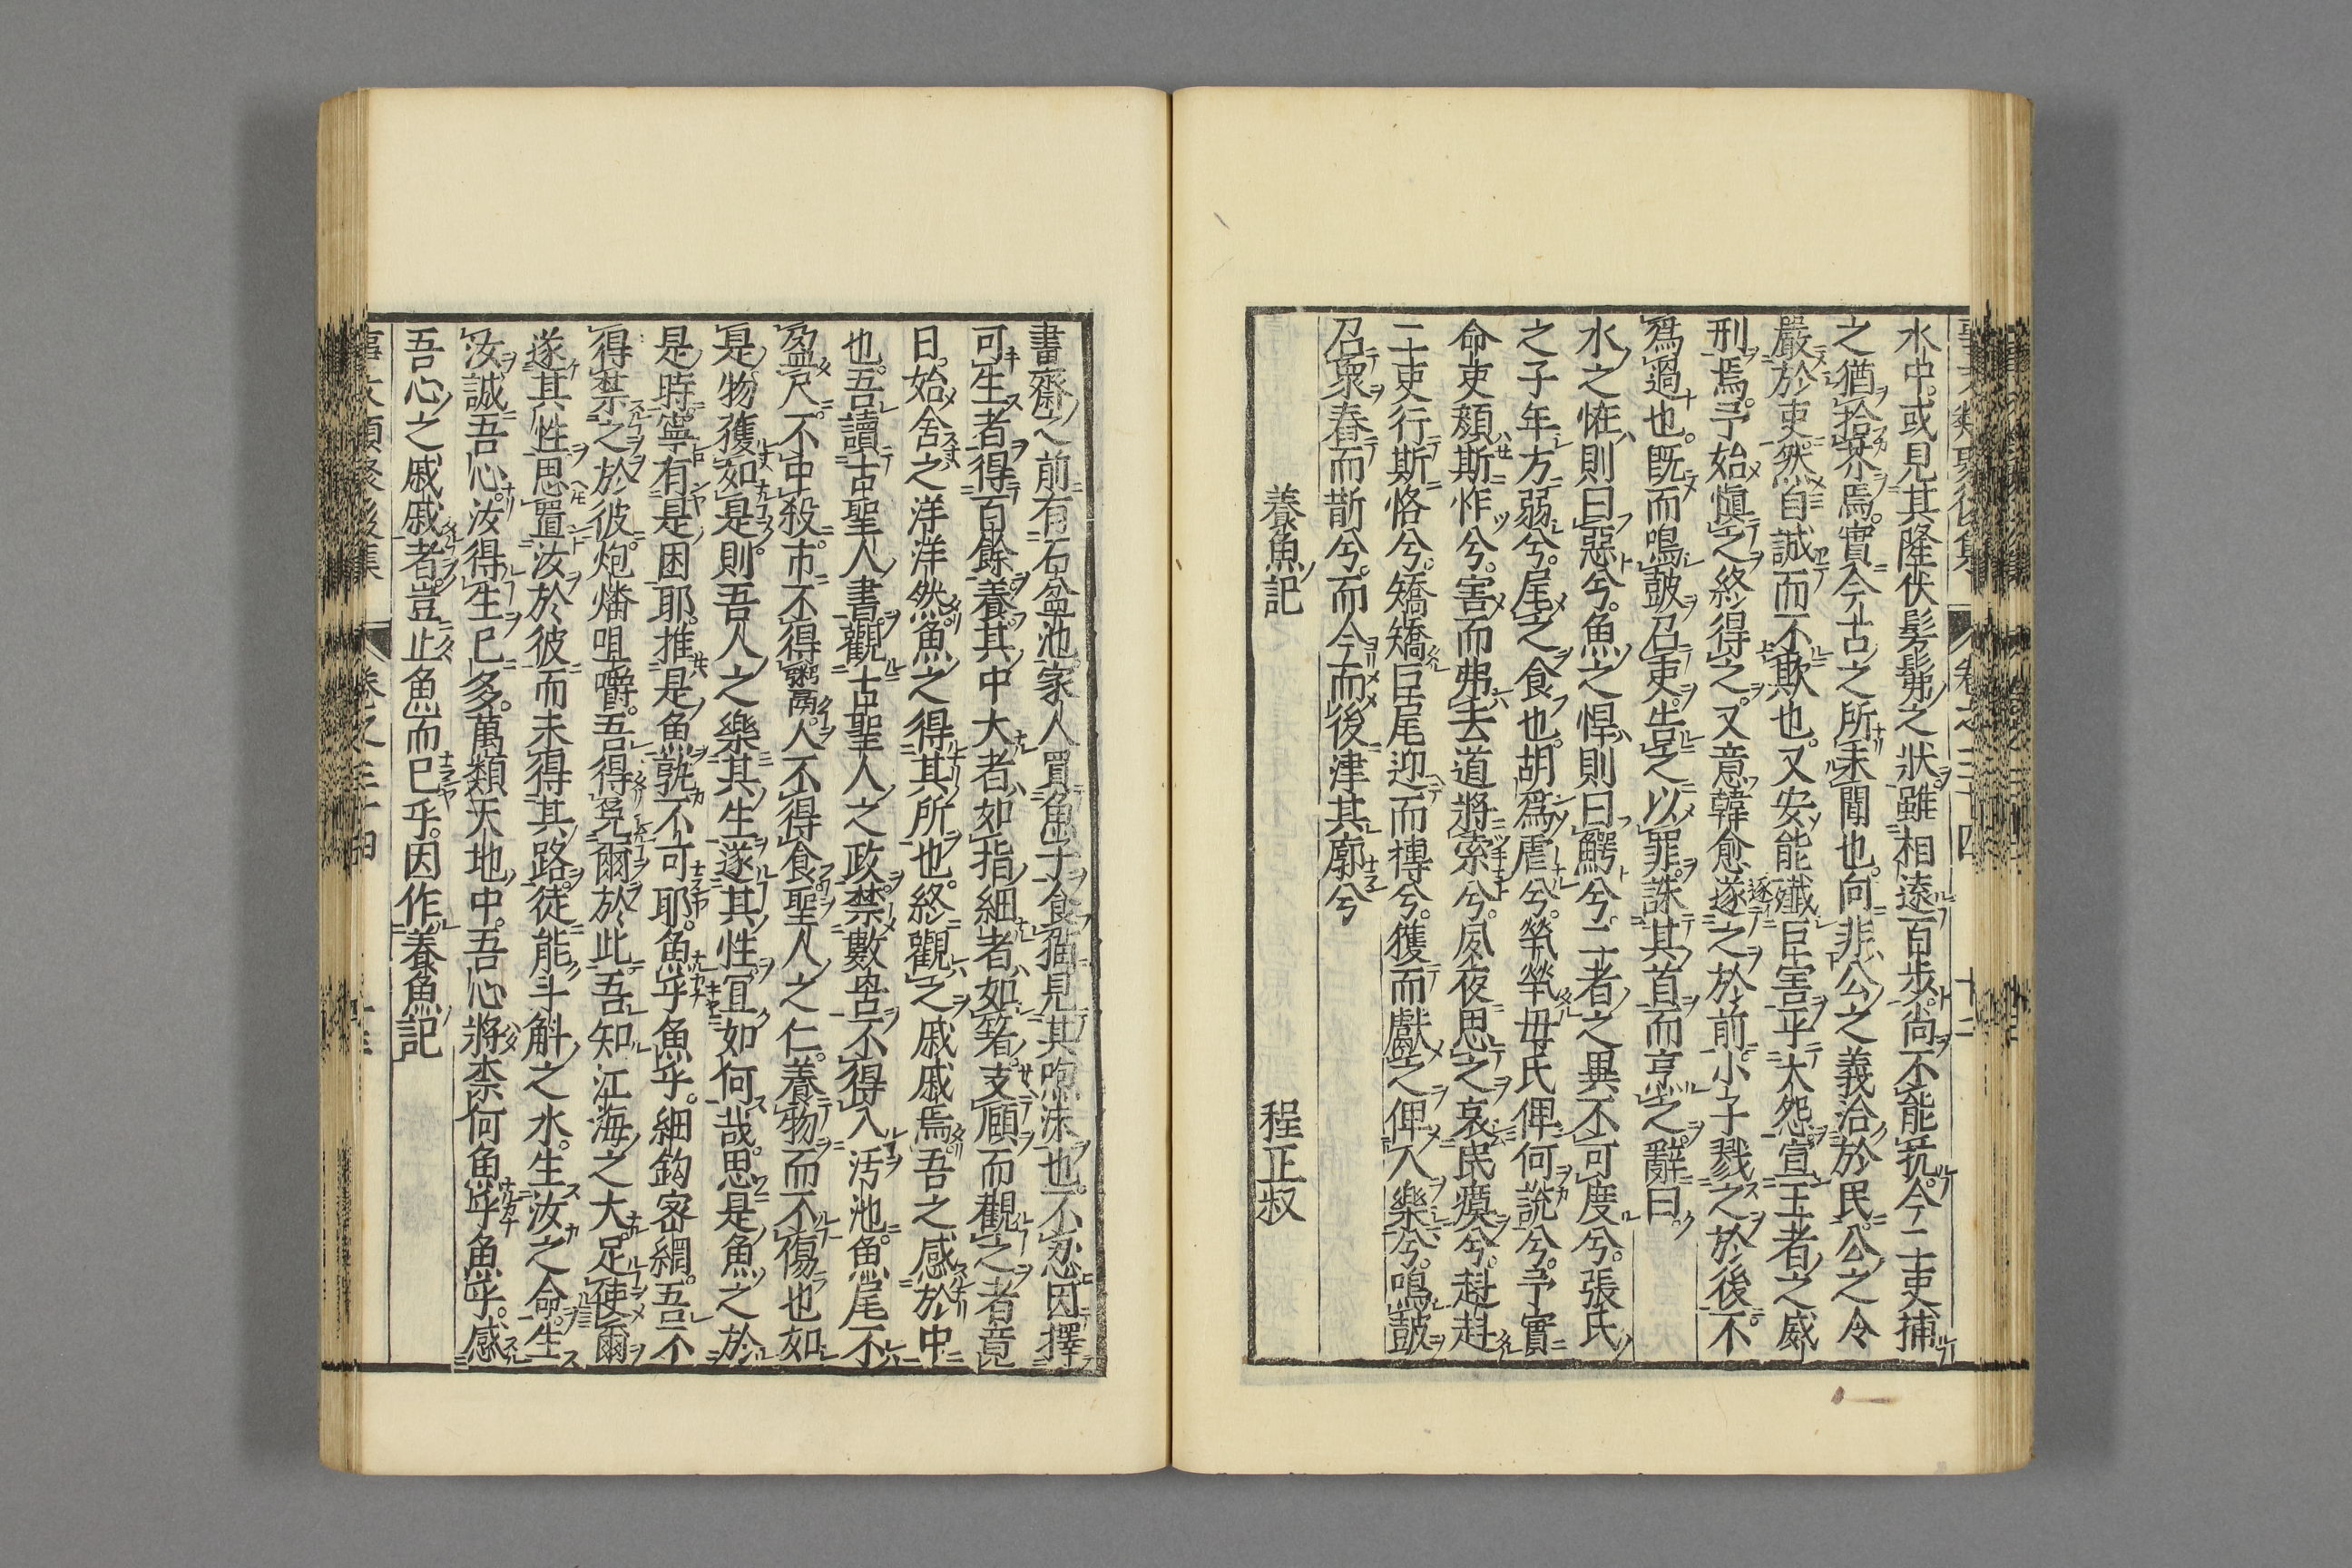 水中。或見其隆伏髣髴之狀。雖相遠百步。尚不能抗。今二吏捕
之。猶拾芥焉。實今古之所未聞也。向非公之義洽於民。公之令
嚴於吏。然自誠而不欺也。又安能殲巨害乎。大怨。宣王者之威
刑焉。予始愼之。終得之。又意韓愈逐遂之於前。小子戮之於後。不
爲過也。旣而鳴鼓召吏。告之以罪。誅其首而烹之。辭曰
水之恠則曰惡兮。魚之悍則曰鰐兮。二者之異不可度兮。張氏
之子年方弱兮。尾之食也。胡爲虐兮。煢煢母氏俾何說兮。予實
命吏頳斯怍兮。害而弗去道將索兮。夙夜思之哀民瘼兮。赳赳
二吏行斯恪兮。矯矯巨尾迎而摶兮。獲而獻之俾人樂兮。鳴鼓
召衆舂而斮兮。而今而後津其廓兮
養魚記 程正叔
書齋之前有石盆池。家人買魚子食猫。見其喣沫也。不忍因擇
可生者。得百餘養其中。大者如指。細者如箸。支頤而觀之者竟
日。始舍之。洋洋然魚之得其所也。終觀之。戚戚焉。吾之感於中
也。吾讀古聖人書。觀古聖人之政。禁數罟不得入汚池。魚尾不
盈尺。不中殺。市不得粥。人不得食。聖人之仁。養物而不傷也如
是。物獲如是。則吾人之樂其生。遂其性。宜如何哉。思是魚之於
是時。寧有是困耶。推是魚孰不可耶。魚乎魚乎。細鈎密網。吾不
得禁之於彼。炮燔咀嚼。吾得免爾於此。吾知江海之大。足使爾
遂其性。思置汝於彼。而未得其路。徒能斗斛之水。生汝之命。生
汝誠吾心。汝得生已多。萬類天地中。吾心將柰何。魚乎魚乎。感
吾心之戚戚者。豈止魚而已乎。因作養魚記
事文類聚後集 卷之三十四